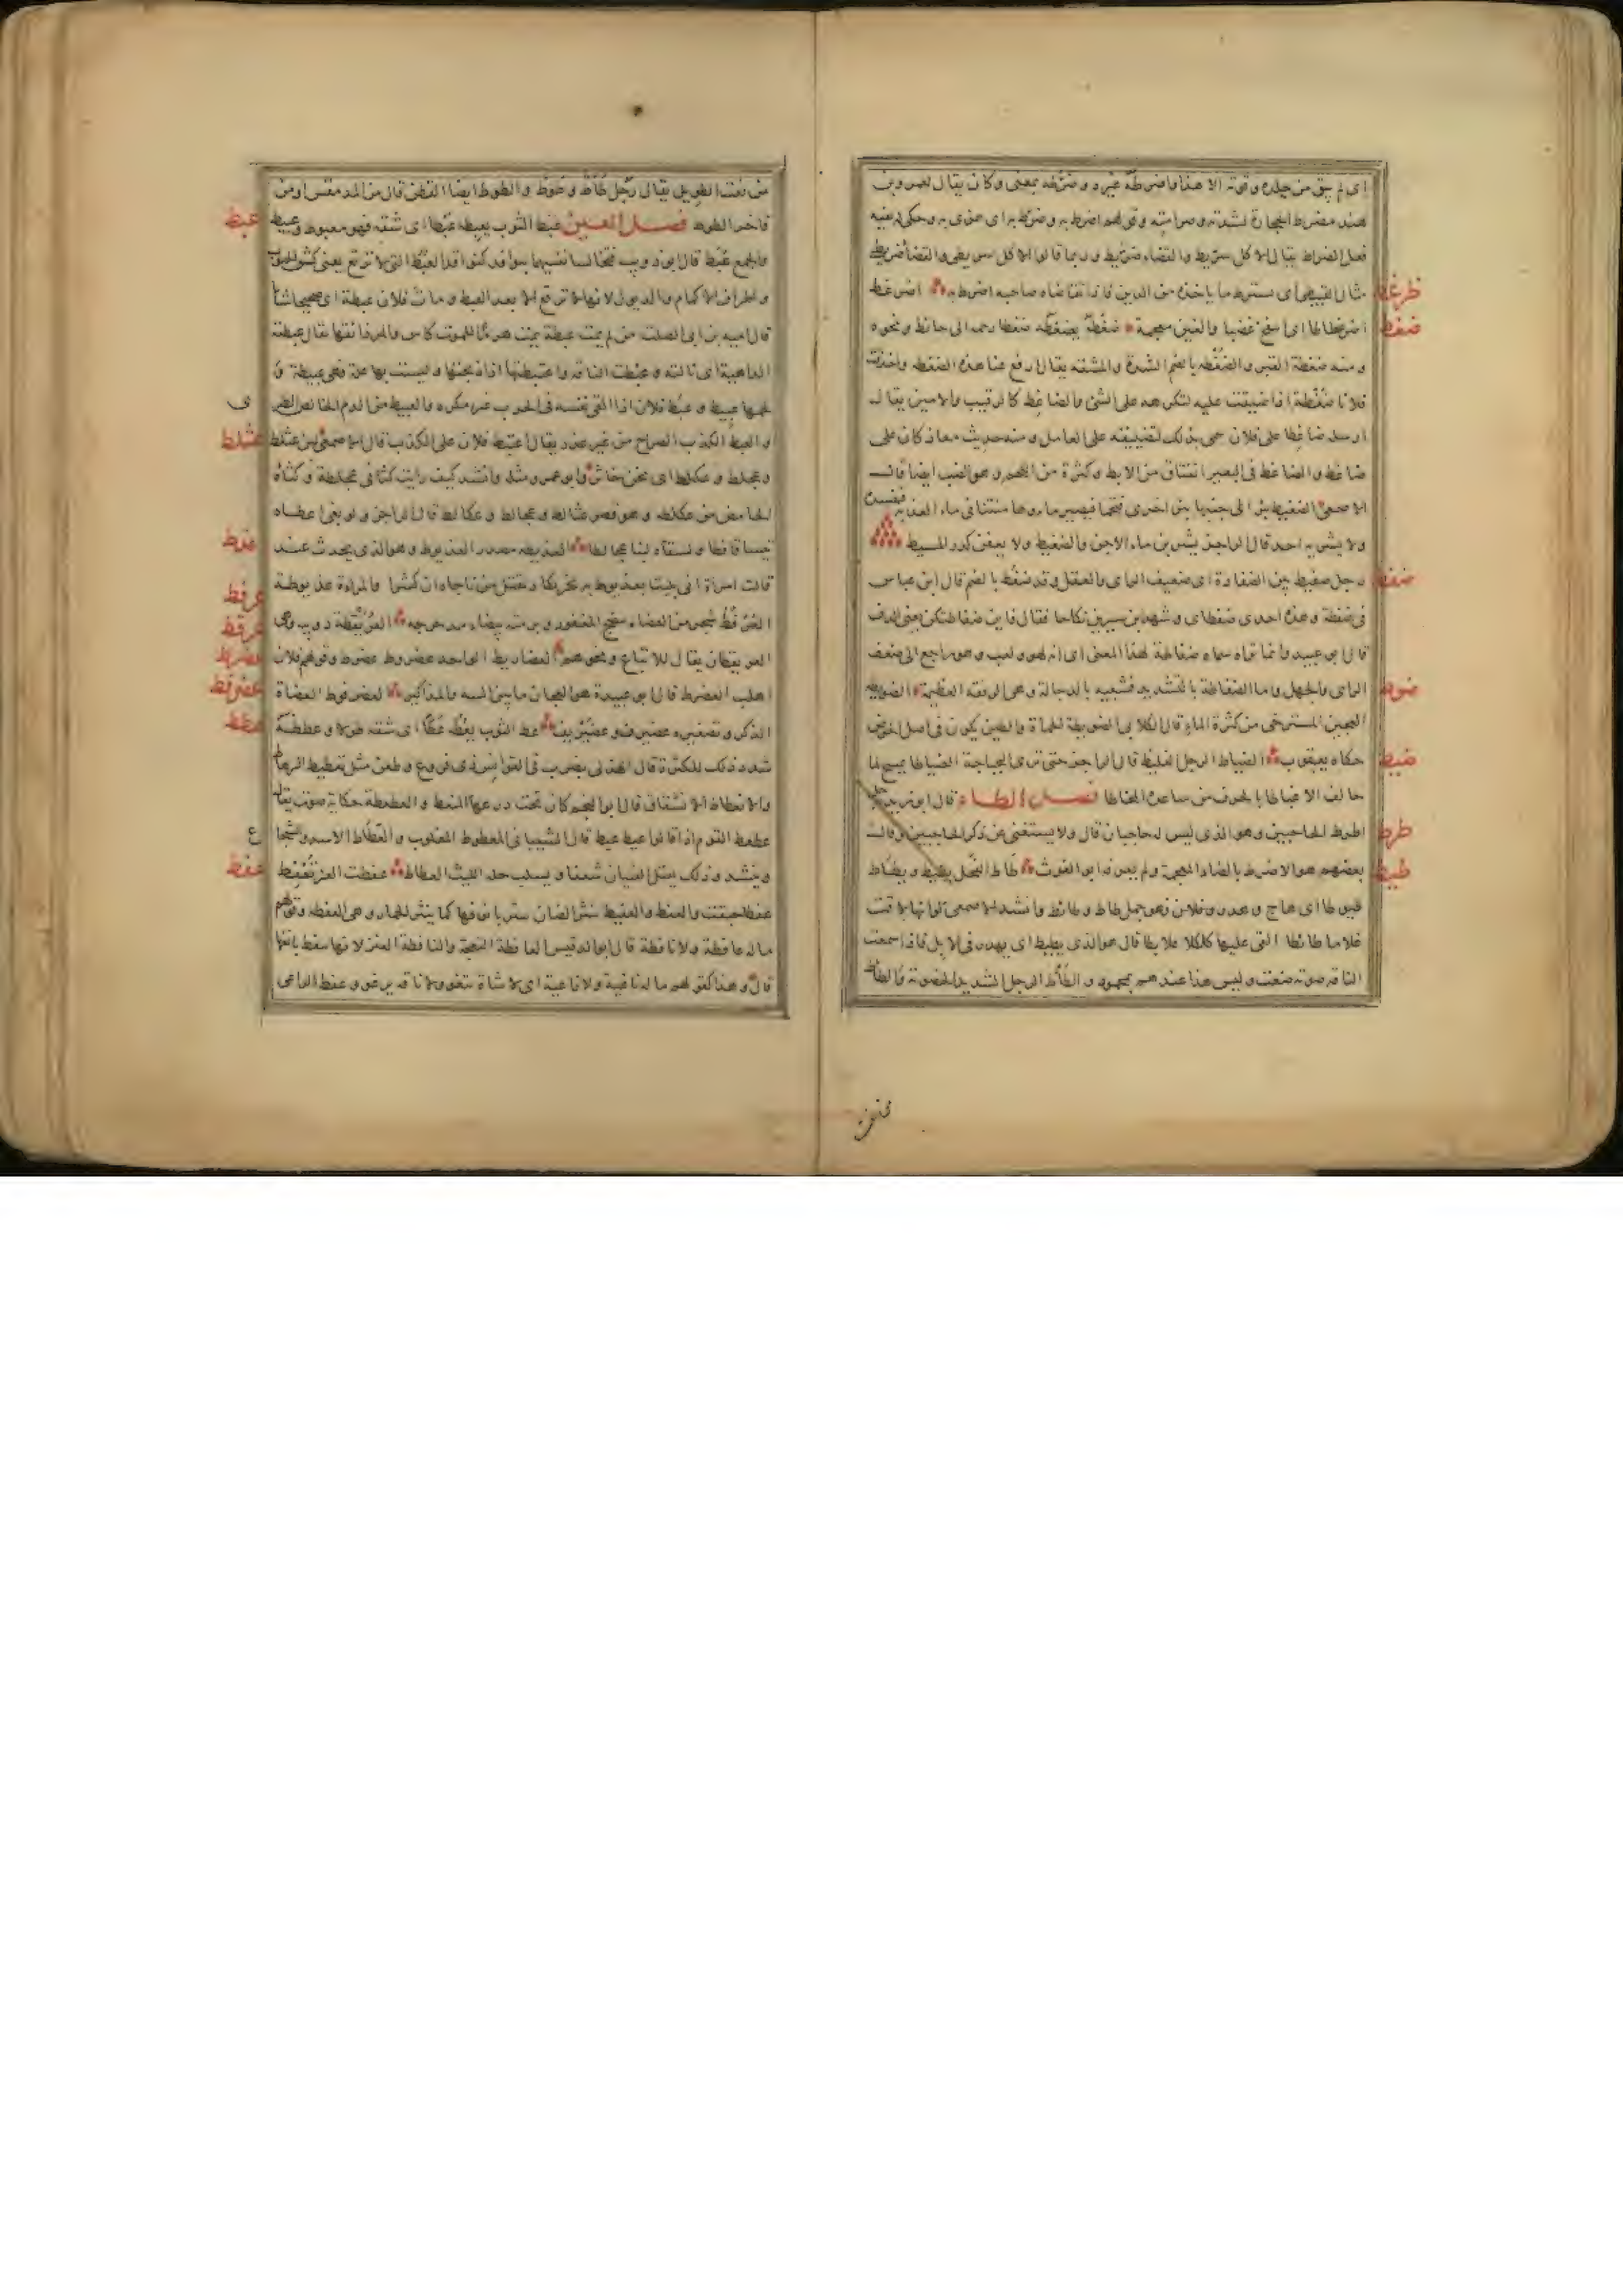 اى لم يبق من جلده وقوته الا هذا واضرطه غيره وضرّطه بمعنى وكان يقال لعمرو بن
هند مضرط الحجارة لشدته وصرامته وقولهم اضرط به وضرّط به اى هزى به وحكى له بفيه
فعل الضراط يقال الاكل سرّيط والقضاء ضرّيط وربما قالوا الاكل سريطى والقضاء ضريطى
مثال القبيطى اى يسترط ما ياخذه من الدين فاذا تقاضاه صاحبه اضرط به اضرغط
ضرغط
اضرغطاطا اى انتفخ غضبا والغين معجمة ضغطه يضغطه ضغطا زحمه الى حائط ونحوه
ضغط
ومنه ضغطة القبر والضُغطة بالضم الشدة والمشقة يقال ارفع عنا هذه الضغطة واخذت
فلانا ضُغطة اذا ضيقت عليه لتكرهه على الشئ والضاغط كالرقيب والامين يقال
ارسله ضاغطا على فلان سمى بذلك لتضييقه على العامل ومنه حديث معاذ كان على
ضاغط والضاغط فى البعير انفتاق من الابط وكثرة من اللحم وهو الضب ايضا قال
الاصمعى الضغيط بئر الى جنبها بئر اخرى فتحما فيصير ماؤها منتنا فى ماء العذبة فيفسده
ولا يشربه احد قال الراجز يشربن ماء الاجن والضغيط ولا يعفن كدر المسيط
رجل ضفيط بين الضفاطة اى ضعيف الراى والعقل وقد ضفُط بالضم قال ابن عباس
ضفط
فى ضفطة وهذه احدى ضفطاى وشهد ابن سيرين نكاحا فقال فاين ضفاطتكن يعنى الدف
قال ابو عبيد وانما نراه سماه ضفاطة لهذا المعنى اى انه لهو ولعب وهو راجع الى ضعف
الراى والجهل واما الضفاطة بالتشديد فشبيه بالدجالة وهى الرفقة العظيمة الضويطه
ضوط
العجين المسترخى من كثرة الماء قال الكلابى الضويطة الحمأة والطين يكون فى اصل الحوض
حكاه يعقوب الضياط الرجل الغليظ قال الراجز حتى ترى البجباجة الضياطا يمسح لما
ضيط
حالف الاغباطا بالحرف من ساعده المخاطا فصل الطاء قال ابو زيد رجل
اطرط الحاجبين وهو الذى ليس له حاجبان قال ولا يستغنى عن ذكر الحاجبين وقال
طرط
بعضهم هو الاضرط بالضاد المعجمة ولم يعرفه ابو الغوث طاط الفحل يطيط ويطاط
طيط
طيوطا اى هاج وهدر فهو جمل طاط وطائط وانشد الاصمعى لو انها لاقت
غلاما طائطا القى عليها كلكلا علابطا قال هو الذى يطيط اى يهدر فى الابل فاذا سمعت
الناقة صوته ضبعت وليس هذا عندهم بمحمود والطاط الرجل الشديد الخصومة والطاط
من نعت الطويل يقال رجل طاط وطوط والطوط ايضا القطن قال من المدمقس او من
فاخر الطوط فصل العين عبط الثوب يعبطه عبطا اى شقه فهو معبوط وعبيط
عبط
والجمع عُبُط قال ابو ذويب فتخالسا نفسيهما بنوافذ كنوافذ العبط التى لا ترقع يعنى كشق الجيوب
واطراف الاكمام والذيول لانها لا ترقع الا بعد العبط ومات فلان عبطة اى صحيحا شابا
قال امية بن ابى الصلت من لم يمت عبطة يمت هرما للموت كاس والمرء ذائقها يقال عبطته
الداهية اى نالته وعبطت الناقة واعتبطتها اذا ذبحتها وليست بها علة فهى عبيطة و
لحمها عبيط وعبط فلان اذا القى نفسه فى الحرب غير مكره والعبيط من الدم الخالص الطرى
والعبط الكذب الصراح من غير عذر يقال اعتبط فلان على الكذب قال الاصمعى لبن عثلط
عثلط
وعجلط وعكلط اى ثخن خاثر وابو عمرو مثله وانشد كيف رايت كثأتى عجلطة وكثأة
الخامض من عكلطه وهو قصر عثالط وعجالط وعكالط قال الراجز ولو بغى اعطاه
تيسا قافطا ولسقاه لبنا عجالطا العذيطه مصدر العذيوط وهو الذى يحدث عند
عذط
قالت امراة انى بليت بعذيوط به بخر يكاد يقتل من ناجاه ان كشرا والمراة عذيوطة
العُرفُط شجر من العضاه ينضح المغفور وبرمته بيضاء مدحرجه العريقطة دويبة وهى
عرفط
عرقط
العريقطان يقال للاتباع ونحوهم العضاريط الواحد عضرط وعضروط وقولهم فلان
عضرط
اهلب العضرط قال ابو عبيدة هو العجان ما بين السبه والمذاكير العضرفوط العظاة
عضرفط
الذكر وتصغيره عضيرف وعضيريف عط الثوب يعُطّه عطا اى شقه طولا وعططه
عطط
شدد ذلك للكثرة قال الهذلى بضرب فى القوانس ذى فروغ وطعن مثل تعطيط الرهاط
والانعطاط الانشقاق قال ابو النجم كان تحت درعها المنعط والعطعطة حكاية صوت يقال
عطعط القوم اذا قالوا عيط عيط قال الشيبانى المعطوط المغلوب والعطاط الاسد والشجاع
وينشد وذلك يقتل الفتيان شفعا ويسلب حلة الليث العطاط عفطت العنز تعفِط
عفط
عفطا حبقت والعفط والعفيط نثير الضان تنثر بانوفها كما ينثر الحمار وهى العفطة وقولهم
ماله عافطة ولا نافطة قال ابو الدقيس العافطة النعجة والنافطة العنز لانها تنفط بانفها
قال وهذا كقولهم ماله ثاغية ولا راغية اى لا شاة تثغو ولا ناقة ترغو وعفط الراعى